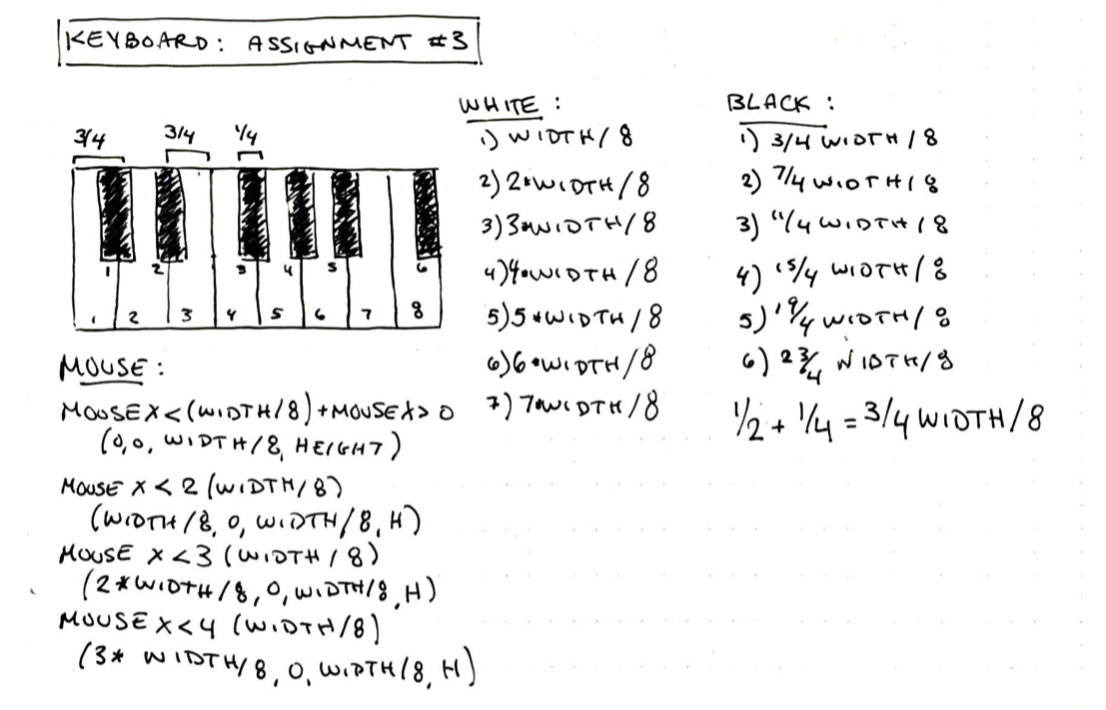 KEYBOARD: ASSIGNMENT #3
3/4 3/4 1/4
1 2 3 4 5 6
1 2 3 4 5 6 7 8
MOUSE:
MOUSE X < (WIDTH/8) + MOUSE X > 0
(0,0, WIDTH/8, HEIGHT)
MOUSE X < 2 (WIDTH/8)
(WIDTH/8, 0, WIDTH/8, H)
MOUSE X < 3 (WIDTH/8)
(2*WIDTH/8, 0, WIDTH/8, H)
MOUSE X < 4 (WIDTH/8)
(3* WIDTH/8, 0, WIDTH/8, H)
WHITE:
1) WIDTH/8
2) 2*WIDTH/8
3) 3*WIDTH/8
4) 4*WIDTH/8
5) 5*WIDTH/8
6) 6*WIDTH/8
7) 7*WIDTH/8
BLACK:
1) 3/4 WIDTH/8
2) 7/4 WIDTH/8
3) 11/4 WIDTH/8
4) 15/4 WIDTH/8
5) 19/4 WIDTH/8
6) 23/4 WIDTH/8
1/2 + 1/4 = 3/4 WIDTH/8